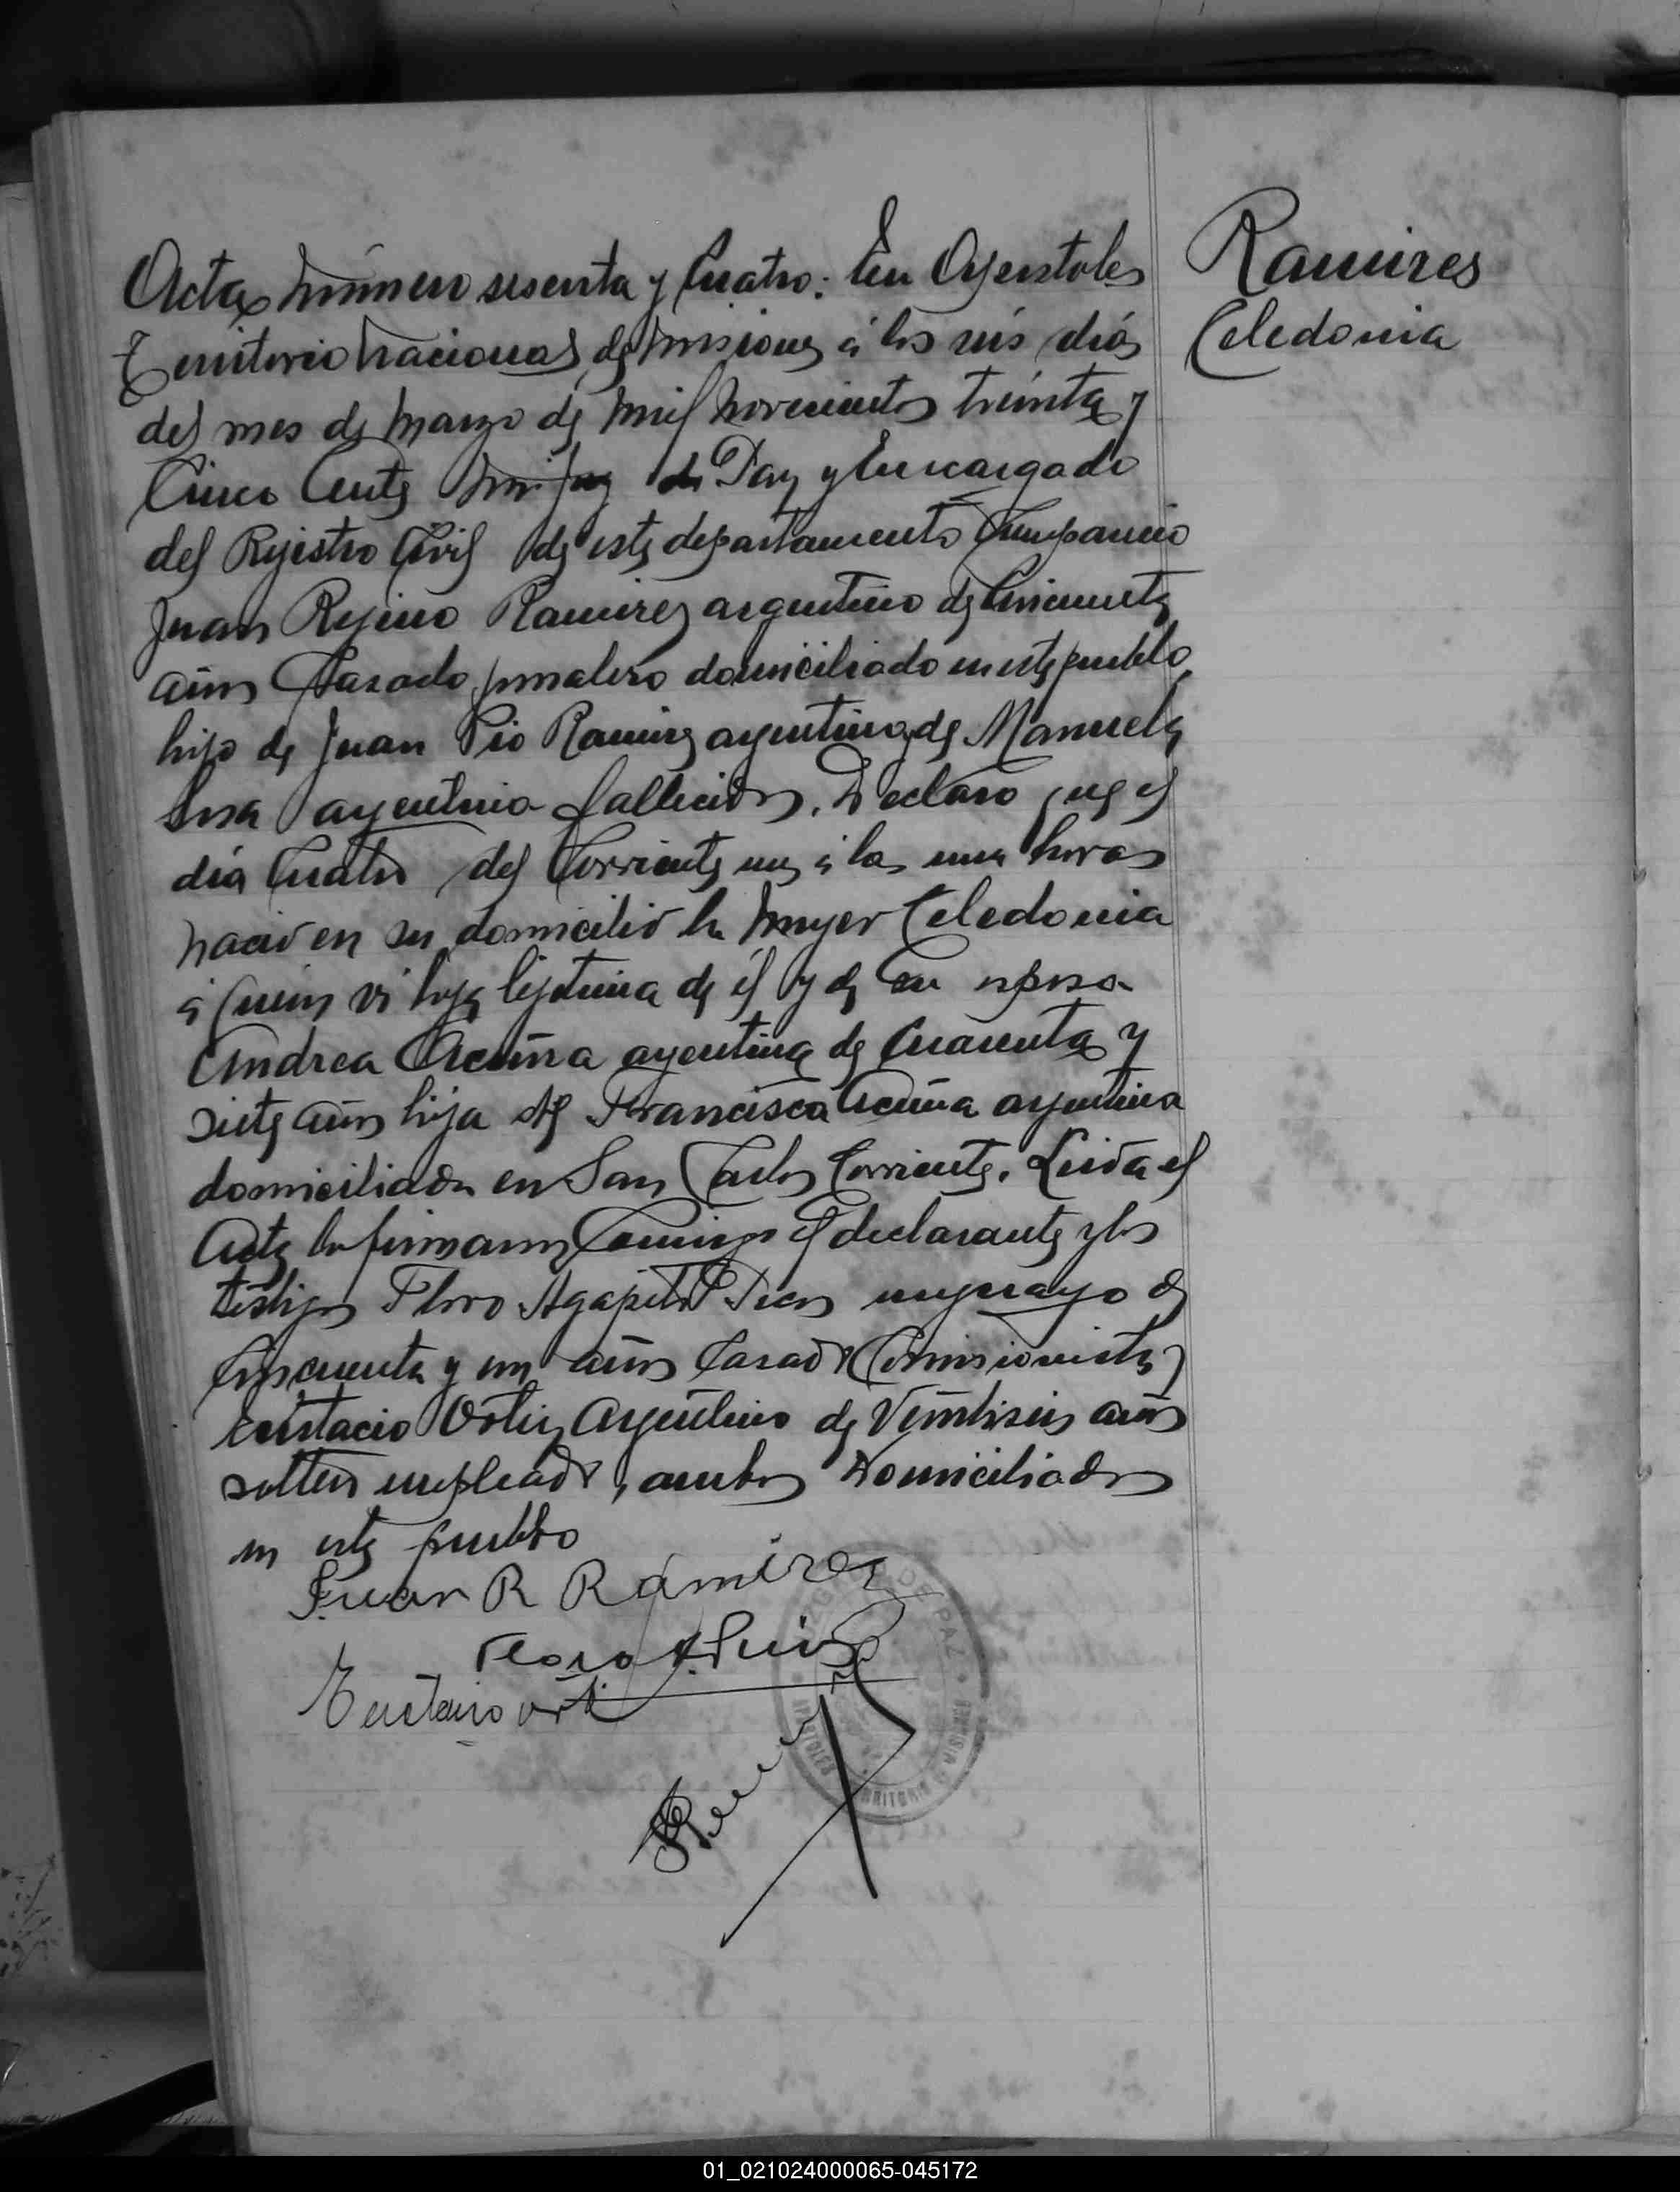 Acta número sesenta y Cuatro: En Apóstoles
Territorio Nacional de Misiones á los seis dias
del mes de Marzo de Mil Novecientos treinta y
Cinco Ante Mi Juez de Paz y Encargado
del Rejistro Civil de este departamento Compareció
Juan Rejino Ramirez argentino de Cincuenta
años Casado jornalero domiciliado en este pueblo
hijo de Juan Pio Ramirez argentino y de Manuela
Sosa argentina fallecidos. Declaro que el
dia Cuatro del Corriente mes á las una horas
nació en su domicilio la Mujer Celedonia
á quien vi hija lejitima de él y de su esposa
Andrea Acuña argentina de Cuarenta y
siete años hija de Francisca Acuña argentina
domiciliada en San Carlos Corrientes. Leida el
Acta la firmaron Conmigo el declarante y los
testigos Floro Agapito uruguayo de
Cincuenta y un años Casado Comisionista y
Eustacio Ortiz Argentino de Veintiseis años
soltero empleado, ambos Domiciliados
en este pueblo
Juan R Ramirez
Floro A.
Eustacio Orti
Ramires
Celedonia
DE PAZ
APOSTOLES
01_021024000065-045172